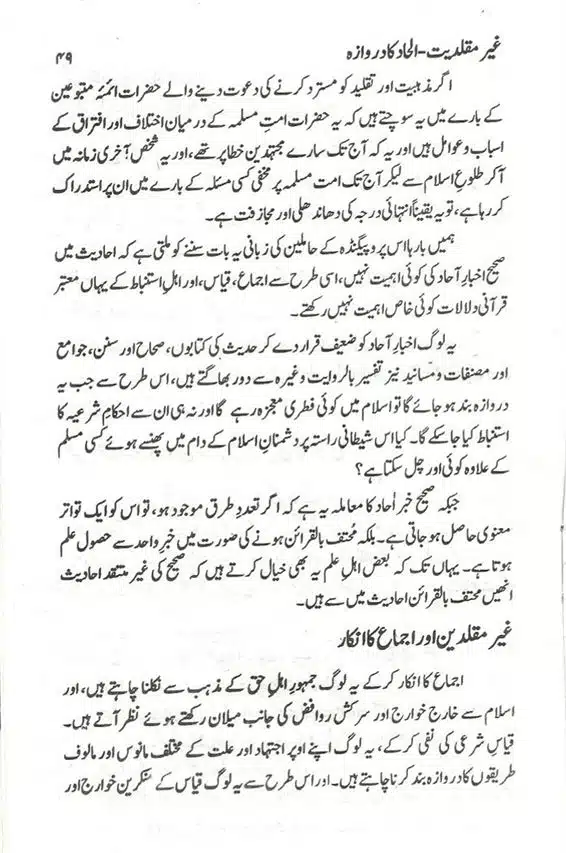 غیر مقلدیت-الحاد کا دروازہ ۴۹
اگر مذہبیت اور تقلید کو مسترد کرنے کی دعوت دینے والے حضرات ائمۂ متبوعین
کے بارے میں یہ سوچتے ہیں کہ یہ حضرات امتِ مسلمہ کے درمیان اختلاف اور افتراق کے
اسباب و عوامل ہیں اور یہ کہ آج تک سارے مجتہدین خطا پر تھے، اور یہ شخص آخری زمانہ میں
آکر طلوعِ اسلام سے لیکر آج تک امت مسلمہ پر مخفی کسی مسئلہ کے بارے میں ان پر استدراک
کر رہا ہے، تو یہ یقیناً انتہائی درجہ کی دھاندھلی اور مجازفت ہے۔
ہمیں بارہا اس پروپیگنڈہ کے حاملین کی زبانی یہ بات سننے کو ملتی ہے کہ احادیث میں
صحیح اخبارِ آحاد کی کوئی اہمیت نہیں، اسی طرح سے اجماع، قیاس، اور اہلِ استنباط کے یہاں معتبر
قرآنی دلالات کوئی خاص اہمیت نہیں رکھتے۔
یہ لوگ اخبارِ آحاد کو ضعیف قرار دے کر حدیث کی کتابوں، صحاح اور سنن، جوامع
اور مصنفات و مسانید نیز تفسیر بالروایت وغیرہ سے دور بھاگتے ہیں، اس طرح سے جب یہ
دروازہ بند ہو جائے گا تو اسلام میں کوئی فطری معجزہ رہے گا اور نہ ہی ان سے احکامِ شرعیہ کا
استنباط کیا جاسکے گا۔ کیا اس شیطانی راستہ پر دشمنانِ اسلام کے دام میں پھنسے ہوئے کسی مسلم
کے علاوہ کوئی اور چل سکتا ہے؟
جبکہ صحیح خبر اُحاد کا معاملہ یہ ہے کہ اگر تعددِ طرق موجود ہو، تو اس کو ایک تواتر
معنوی حاصل ہو جاتی ہے۔ بلکہ مُحتف بالقرائن ہونے کی صورت میں خبرِ واحد سے حصولِ علم
ہوتا ہے۔ یہاں تک کہ بعض اہلِ علم یہ بھی خیال کرتے ہیں کہ صحیح کی غیر منتقد احادیث
انھیں محتف بالقرائن احادیث میں سے ہیں۔
غیر مقلدین اور اجماع کا انکار
اجماع کا انکار کرکے یہ لوگ جمہور اہلِ حق کے مذہب سے نکلنا چاہتے ہیں، اور
اسلام سے خارج خوارج اور سرکش روافض کی جانب میلان رکھتے ہوئے نظر آتے ہیں۔
قیاسِ شرعی کی نفی کرکے، یہ لوگ اپنے اوپر اجتہاد اور علت کے مختلف مانوس اور مالوف
طریقوں کا دروازہ بند کرنا چاہتے ہیں۔ اور اس طرح سے یہ لوگ قیاس کے منکرین خوارج اور